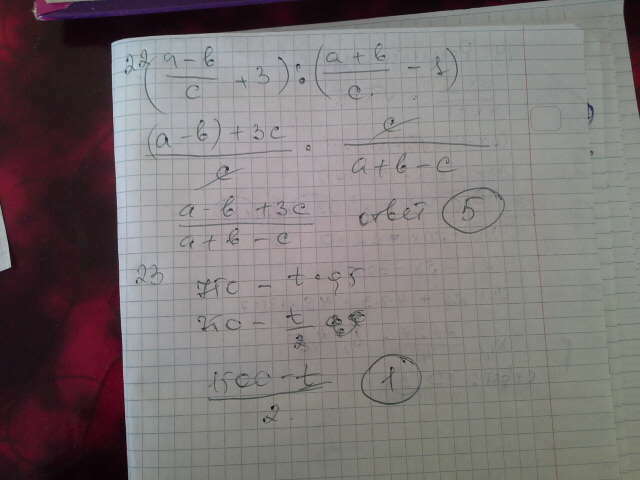 22 ((a-b)/c + 3) : ((a+b)/c - 1)
((a-b)+3c)/c · c/(a+b-c)
(a-b+3c)/(a+b-c) ответ 5
23 750 - t · 0,5
750 - t/2
(1500-t)/2 1